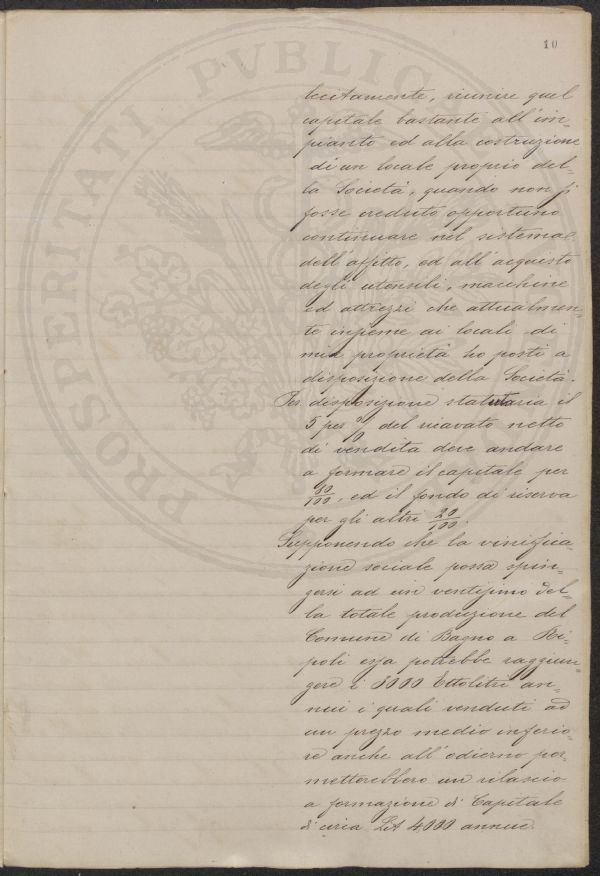 10
lecitamente, riunire quel
capitale bastante all'im-
pianto ed alla costruzione
di un locale proprio del-
la Società, quando non si
fosse creduto opportuno
continuare nel sistema
dell'affitto, ed all'acquisto
degli utensili, macchine
ed attrezzi che attualmen-
te insieme ai locali di
mia proprietà ho posti a
disposizione della Società.
Per disposizione statutaria il
5 per % del ricavato netto
di vendita deve andare
a formare il capitale per
80/100, ed il fondo di riserva
per gli altri 20/100.
Supponendo che la vinifica-
zione sociale possa spin-
gersi ad un ventesimo del-
la totale produzione del
Comune di Bagno a Ri-
poli essa potrebbe raggiun-
gere i 5000 Ettolitri an-
nui i quali venduti ad
un prezzo medio inferio-
re anche all'odierno per-
metterebbero un rilascio
a formazione di Capitale
di circa Lit 4000 annue.
PROSPERITATI PVBLICAE